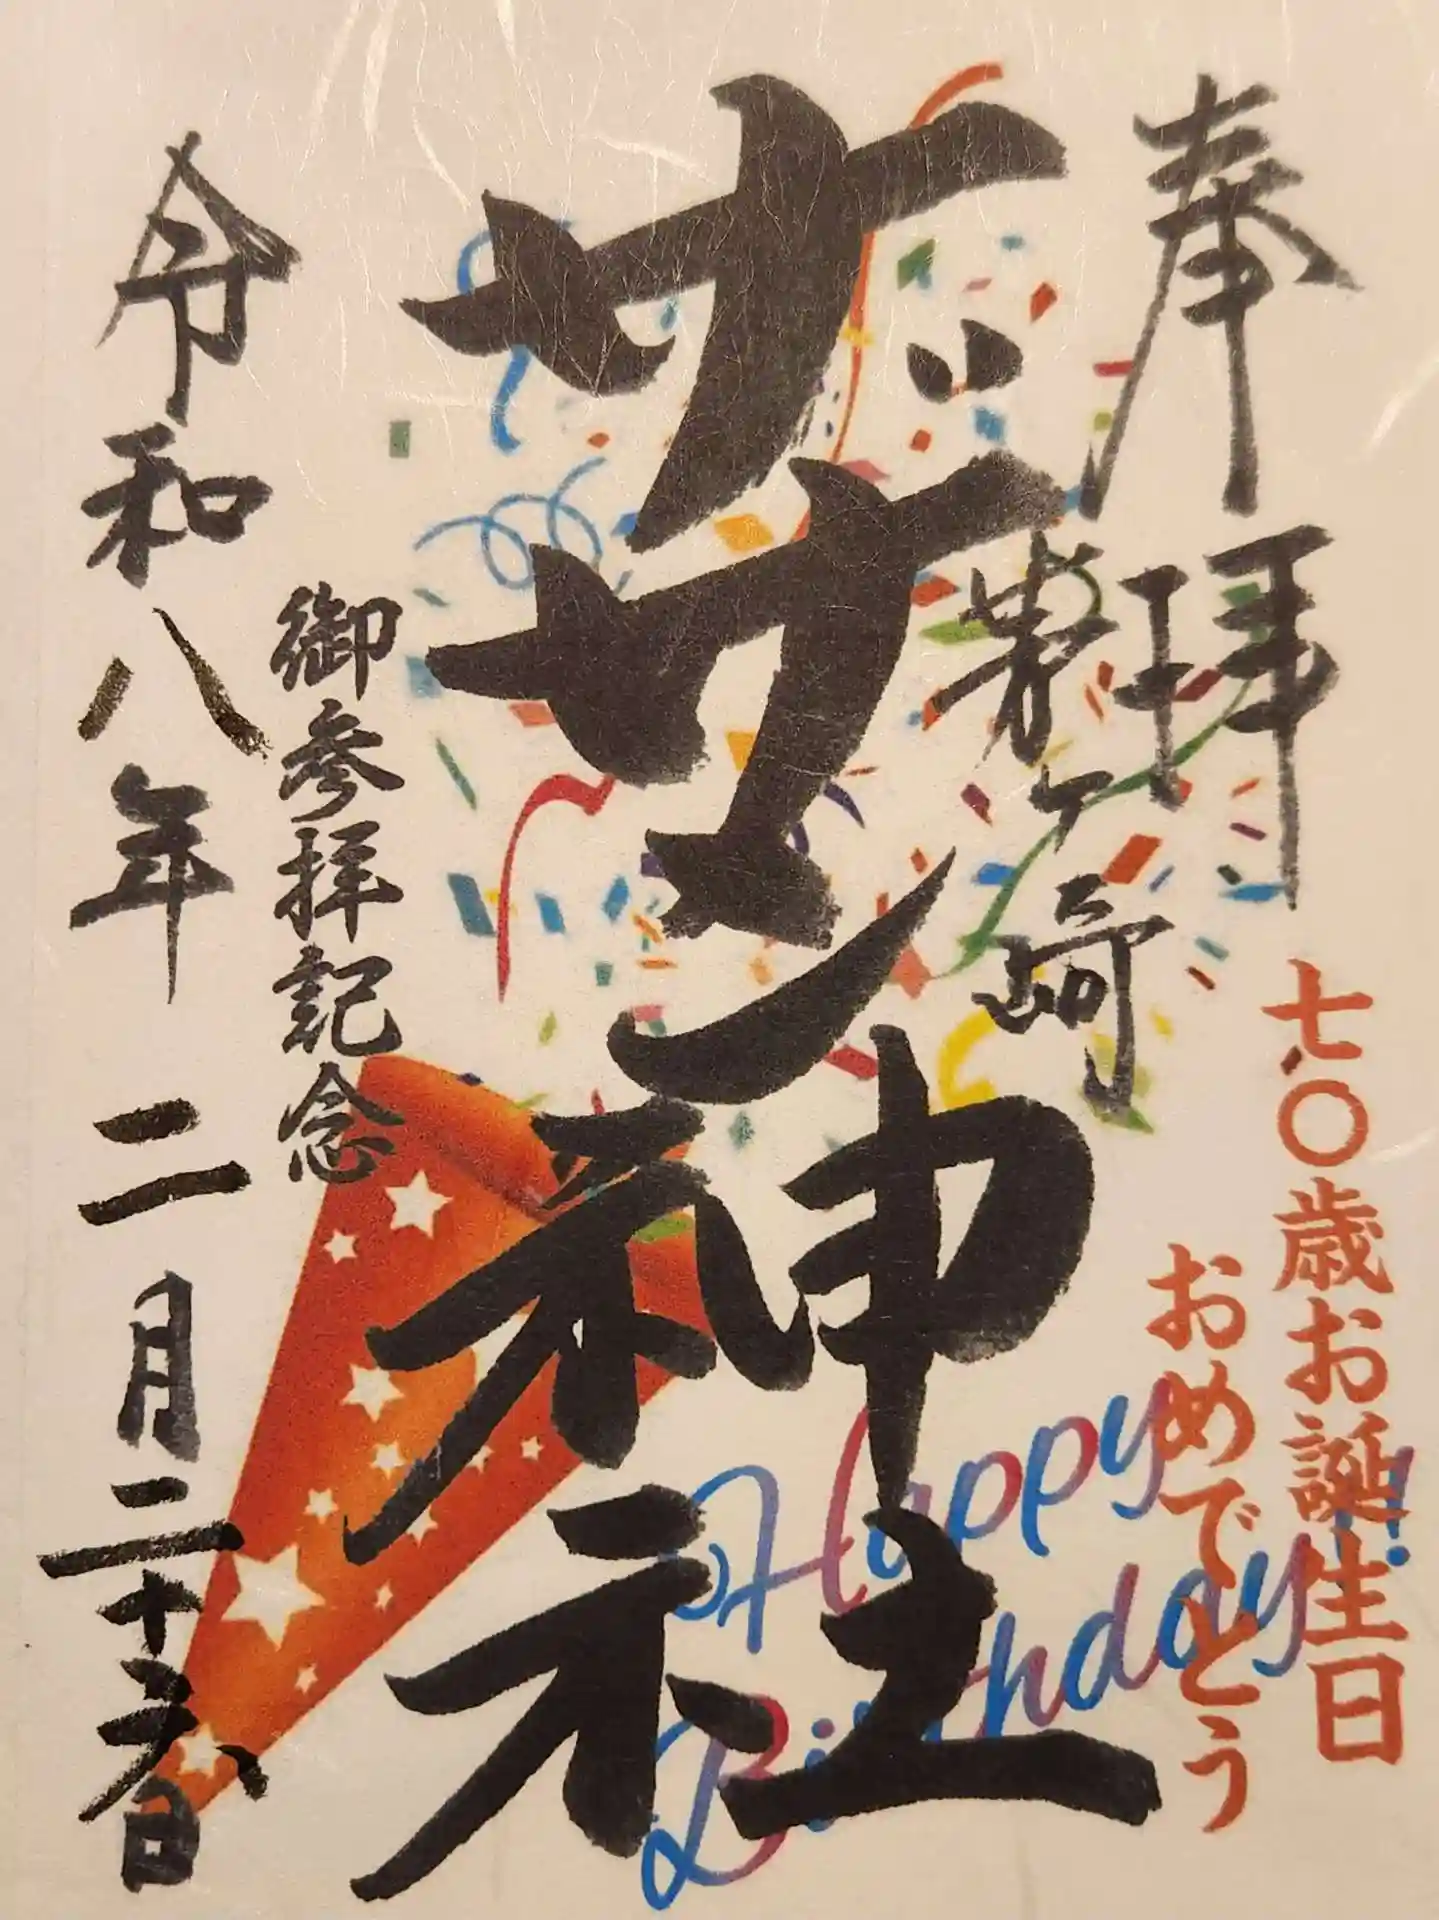 奉拝
七〇歳お誕生日
おめでとう
茅ヶ崎
サザン神社
Happy
Birthday!!
御参拝記念
令和八年 二月二十六日